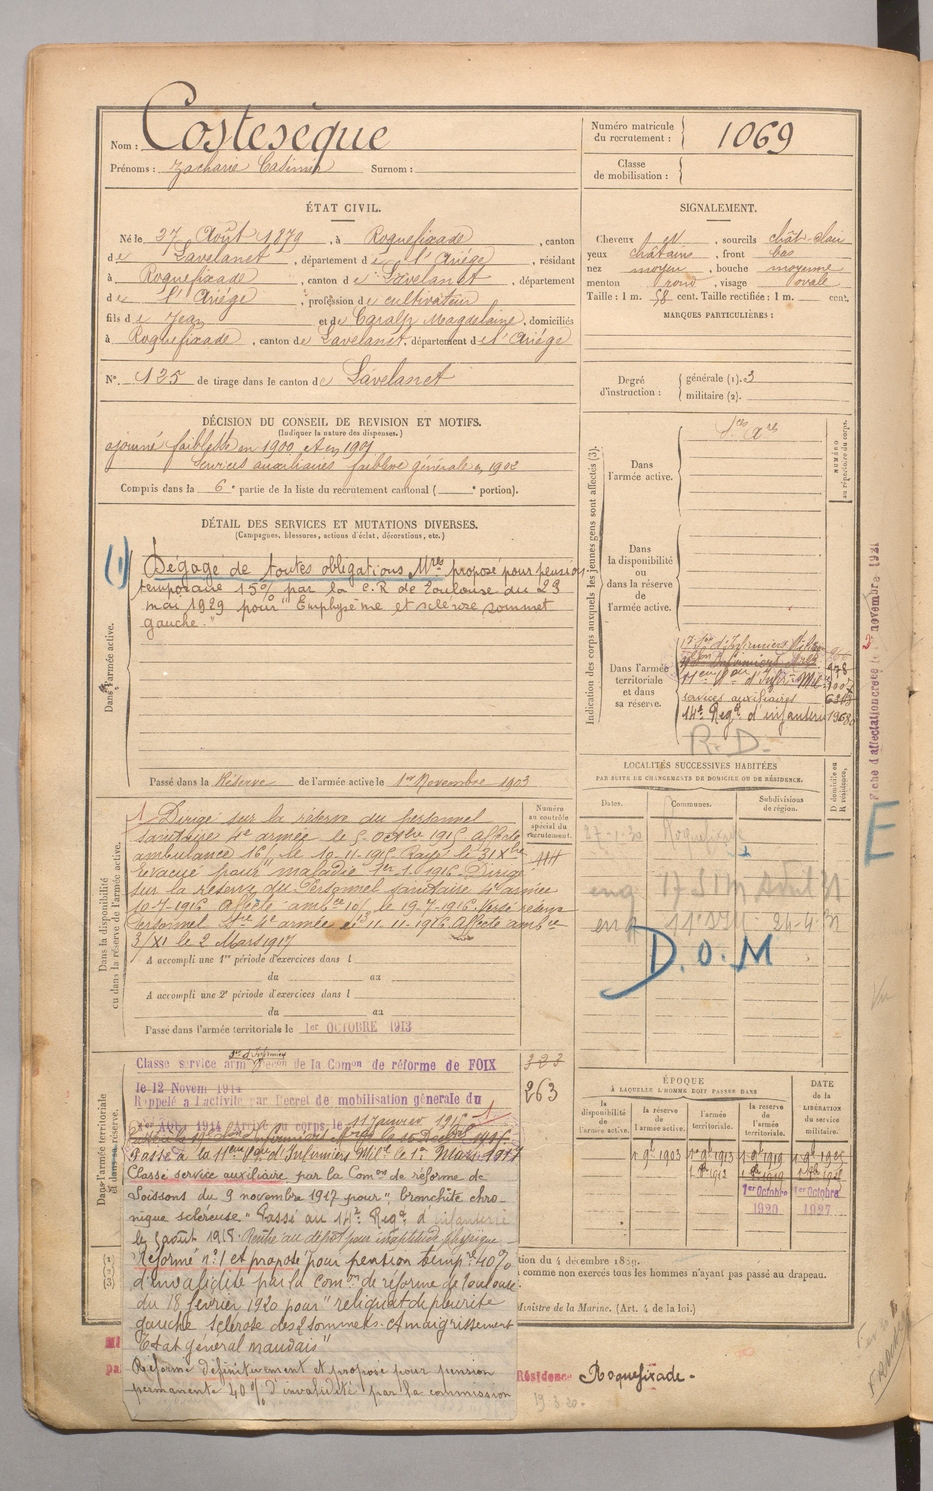 Nom : Costesèque
Prénoms : Zacharie Casimir Surnom :
Numéro matricule du recrutement : 1069
Classe de mobilisation :
ÉTAT CIVIL.
Né le 27 Août 1879, à Roquefixade, canton
de Lavelanet, département de l'Ariège, résidant
à Roquefixade, canton de Lavelanet, département
de l'Ariège, profession de cultivateur
fils de Jean et de Caralp Magdelaine, domiciliés
à Roquefixade, canton de Lavelanet, département de l'Ariége
N° 125 de tirage dans le canton de Lavelanet
SIGNALEMENT.
Cheveux, sourcils chât-clair
yeux châtains, front bas
nez moyen, bouche moyenne
menton rond, visage ovale
Taille : 1 m. 58 cent. Taille rectifiée : 1 m. cent.
MARQUES PARTICULIÈRES :
Degré d'instruction : générale (1). 3
militaire (2).
DÉCISION DU CONSEIL DE REVISION ET MOTIFS.
(Indiquer la nature des dispenses.)
ajourné faiblesse en 1900 et en 1901
services auxiliaires faiblesse générale en 1902
Compris dans la 6e partie de la liste du recrutement cantonal ( e portion).
DÉTAIL DES SERVICES ET MUTATIONS DIVERSES.
(Campagnes, blessures, actions d'éclat, décorations, etc.)
Dans l'armée active.
(1) Dégagé de toutes obligations Mres proposé pour pension
temporaire 15% par la C.R de Toulouse du 23
mai 1929 pour "Emphysème et sclérose sommet
gauche."
Passé dans la Réserve de l'armée active le 1er Novembre 1903
Indication des corps auxquels les jeunes gens sont affectés (3).
NUMÉRO au répertoire du corps.
Dans l'armée active.
Dans la disponibilité ou dans la réserve de l'armée active.
Dans l'armée territoriale et dans sa réserve.
services auxiliaires
14e Regt d'infanterie
R.D.
Fiche d'affectation créée le 2 novembre 1921
LOCALITÉS SUCCESSIVES HABITÉES
PAR SUITE DE CHANGEMENTS DE DOMICILE OU DE RÉSIDENCE.
Dates. Communes. Subdivisions de région. D domicile ou R résidence.
27-1-30 Roquefixade
D.O.M
E
Dans la disponibilité ou dans la réserve de l'armée active.
Numéro au contrôle spécial du recrutement.
Dirigé sur la réserve du personnel
sanitaire 4e armée le 5 Octbre 1915 Affecté
ambulance 16/ le 10-11-1915 Rayé le 31 Xbre
Evacué pour maladie 1er-1-1916. Dirigé
sur la réserve du Personnel sanitaire 4e armée
10-7-1916 affecté ambce 10/ le 19-7-1916. Versé réserve
Personnel Sre 4e armée 11-11-1916 Affecté ambce
3/XI le 2 Mars 1917
A accompli une 1re période d'exercices dans l
du au
A accompli une 2e période d'exercices dans l
du au
Passé dans l'armée territoriale le 1er OCTOBRE 1913
Dans l'armée territoriale et dans sa réserve.
263
Classé service armé de la Comon de réforme de FOIX
le 12 Novem 1914
Rappelé à l'activité par Décret de mobilisation générale du
1er Aout 1914 Arrivé au corps le
Passé à la 11eme Son d'Infirmiers Milres le 1er Mars 1917
Classé service auxiliaire par la Comon de réforme de
Soissons du 9 novembre 1917 pour "bronchite chro-
nique scléreuse." Passé au 14e Regt d'infanterie
le août 1918. Rentré au dépôt pour inaptitude physique
Réformé n°1 et proposé pour pension tempre 40%
d'invalidité par la Comon de réforme de Toulouse
du 18 février 1920 pour "reliquat de pleurite
gauche sclérose des 2 sommets. Amaigrissement
Etat général mauvais"
Réformé définitivement et proposé pour pension
permanente 40% d'invalidité par la commission
ÉPOQUE
À LAQUELLE L'HOMME DOIT PASSER DANS
DATE DE LA LIBÉRATION du service militaire.
la disponibilité de l'armée active. la réserve de l'armée active. l'armée territoriale. la réserve de l'armée territoriale.
1er Octobre 1920 1er Octobre 1927
tion du 4 décembre 1889.
comme non exercés tous les hommes n'ayant pas passé au drapeau.
Ministre de la Marine. (Art. 4 de la loi.)
Résidence Roquefixade.
19-3-20.